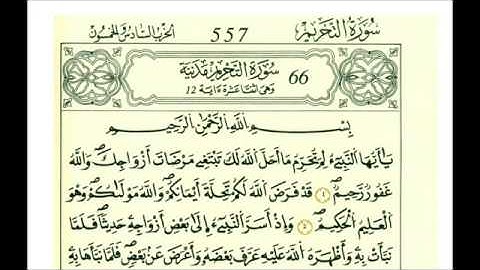 سُورَةُ التَّحْرِيمِ 557 الحزب السادس والخمسون
66 سُورَةُ التَّحْرِيمِ مَدَنِيَّة
وَهِيَ اثْنَتَا عَشْرَةَ ءَايَة 12
بِسْمِ اللَّهِ الرَّحْمَٰنِ الرَّحِيمِ
يَٰأَيُّهَا النَّبِيٓءُ لِمَ تُحَرِّمُ مَا أَحَلَّ اللَّهُ لَكَ تَبْتَغِي مَرْضَاتَ أَزْوَاجِكَ وَاللَّهُ
غَفُورٌ رَّحِيمٌ ١ قَدْ فَرَضَ اللَّهُ لَكُمْ تَحِلَّةَ أَيْمَانِكُمْ وَاللَّهُ مَوْلَىٰكُمْ وَهُوَ
الْعَلِيمُ الْحَكِيمُ ٢ وَإِذْ أَسَرَّ النَّبِيٓءُ إِلَىٰ بَعْضِ أَزْوَاجِهِ حَدِيثًا فَلَمَّا
نَبَّأَتْ بِهِ وَأَظْهَرَهُ اللَّهُ عَلَيْهِ عَرَّفَ بَعْضَهُ وَأَعْرَضَ عَنْ بَعْضٍ فَلَمَّا نَبَّأَهَا بِهِ